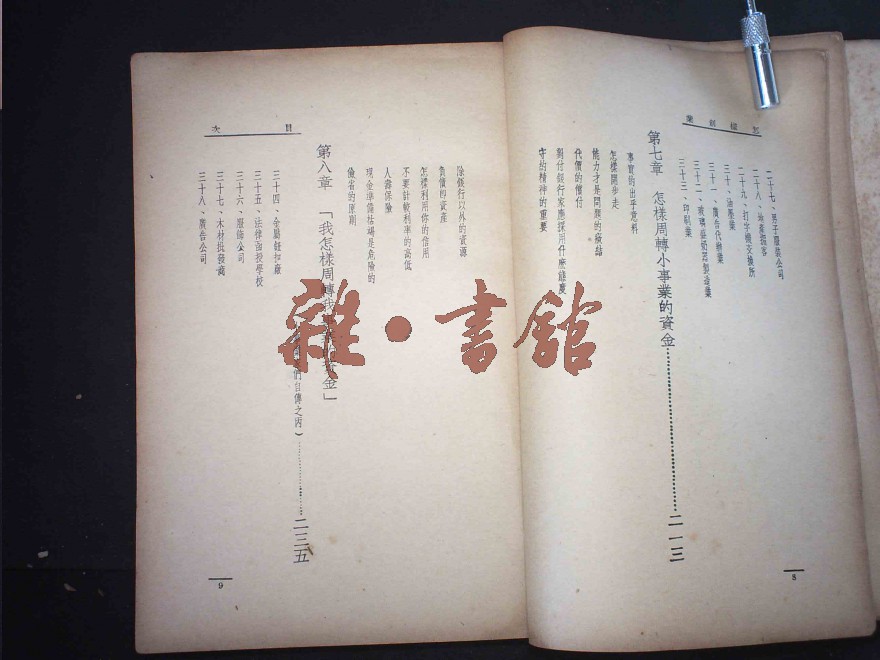 怎樣創業
二十七、男子服裝公司
二十八、地產掮客
二十九、打字機交換所
三十、油墨業
三十一、廣告代辦業
三十二、玻璃並奶器製造業
三十三、印刷業
第七章　怎樣周轉小事業的資金……二一三
事實的出乎意料
怎樣開步走
能力才是問題的癥結
代價的償付
對付銀行家應採用什麽態度
守約精神的重要
8
目次
除銀行以外的資源
負債即資產
怎樣利用你的信用
不要計較利率的高低
人壽保險
現金準備枯竭是危險的
儉省的原則
第八章　「我怎樣周轉我
金」
們自傳之丙）……二三五
三十四、金屬鈕扣廠
三十五、法律函授學校
三十六、服飾公司
三十七、木材批發商
三十八、廣告公司
9
雜·書館